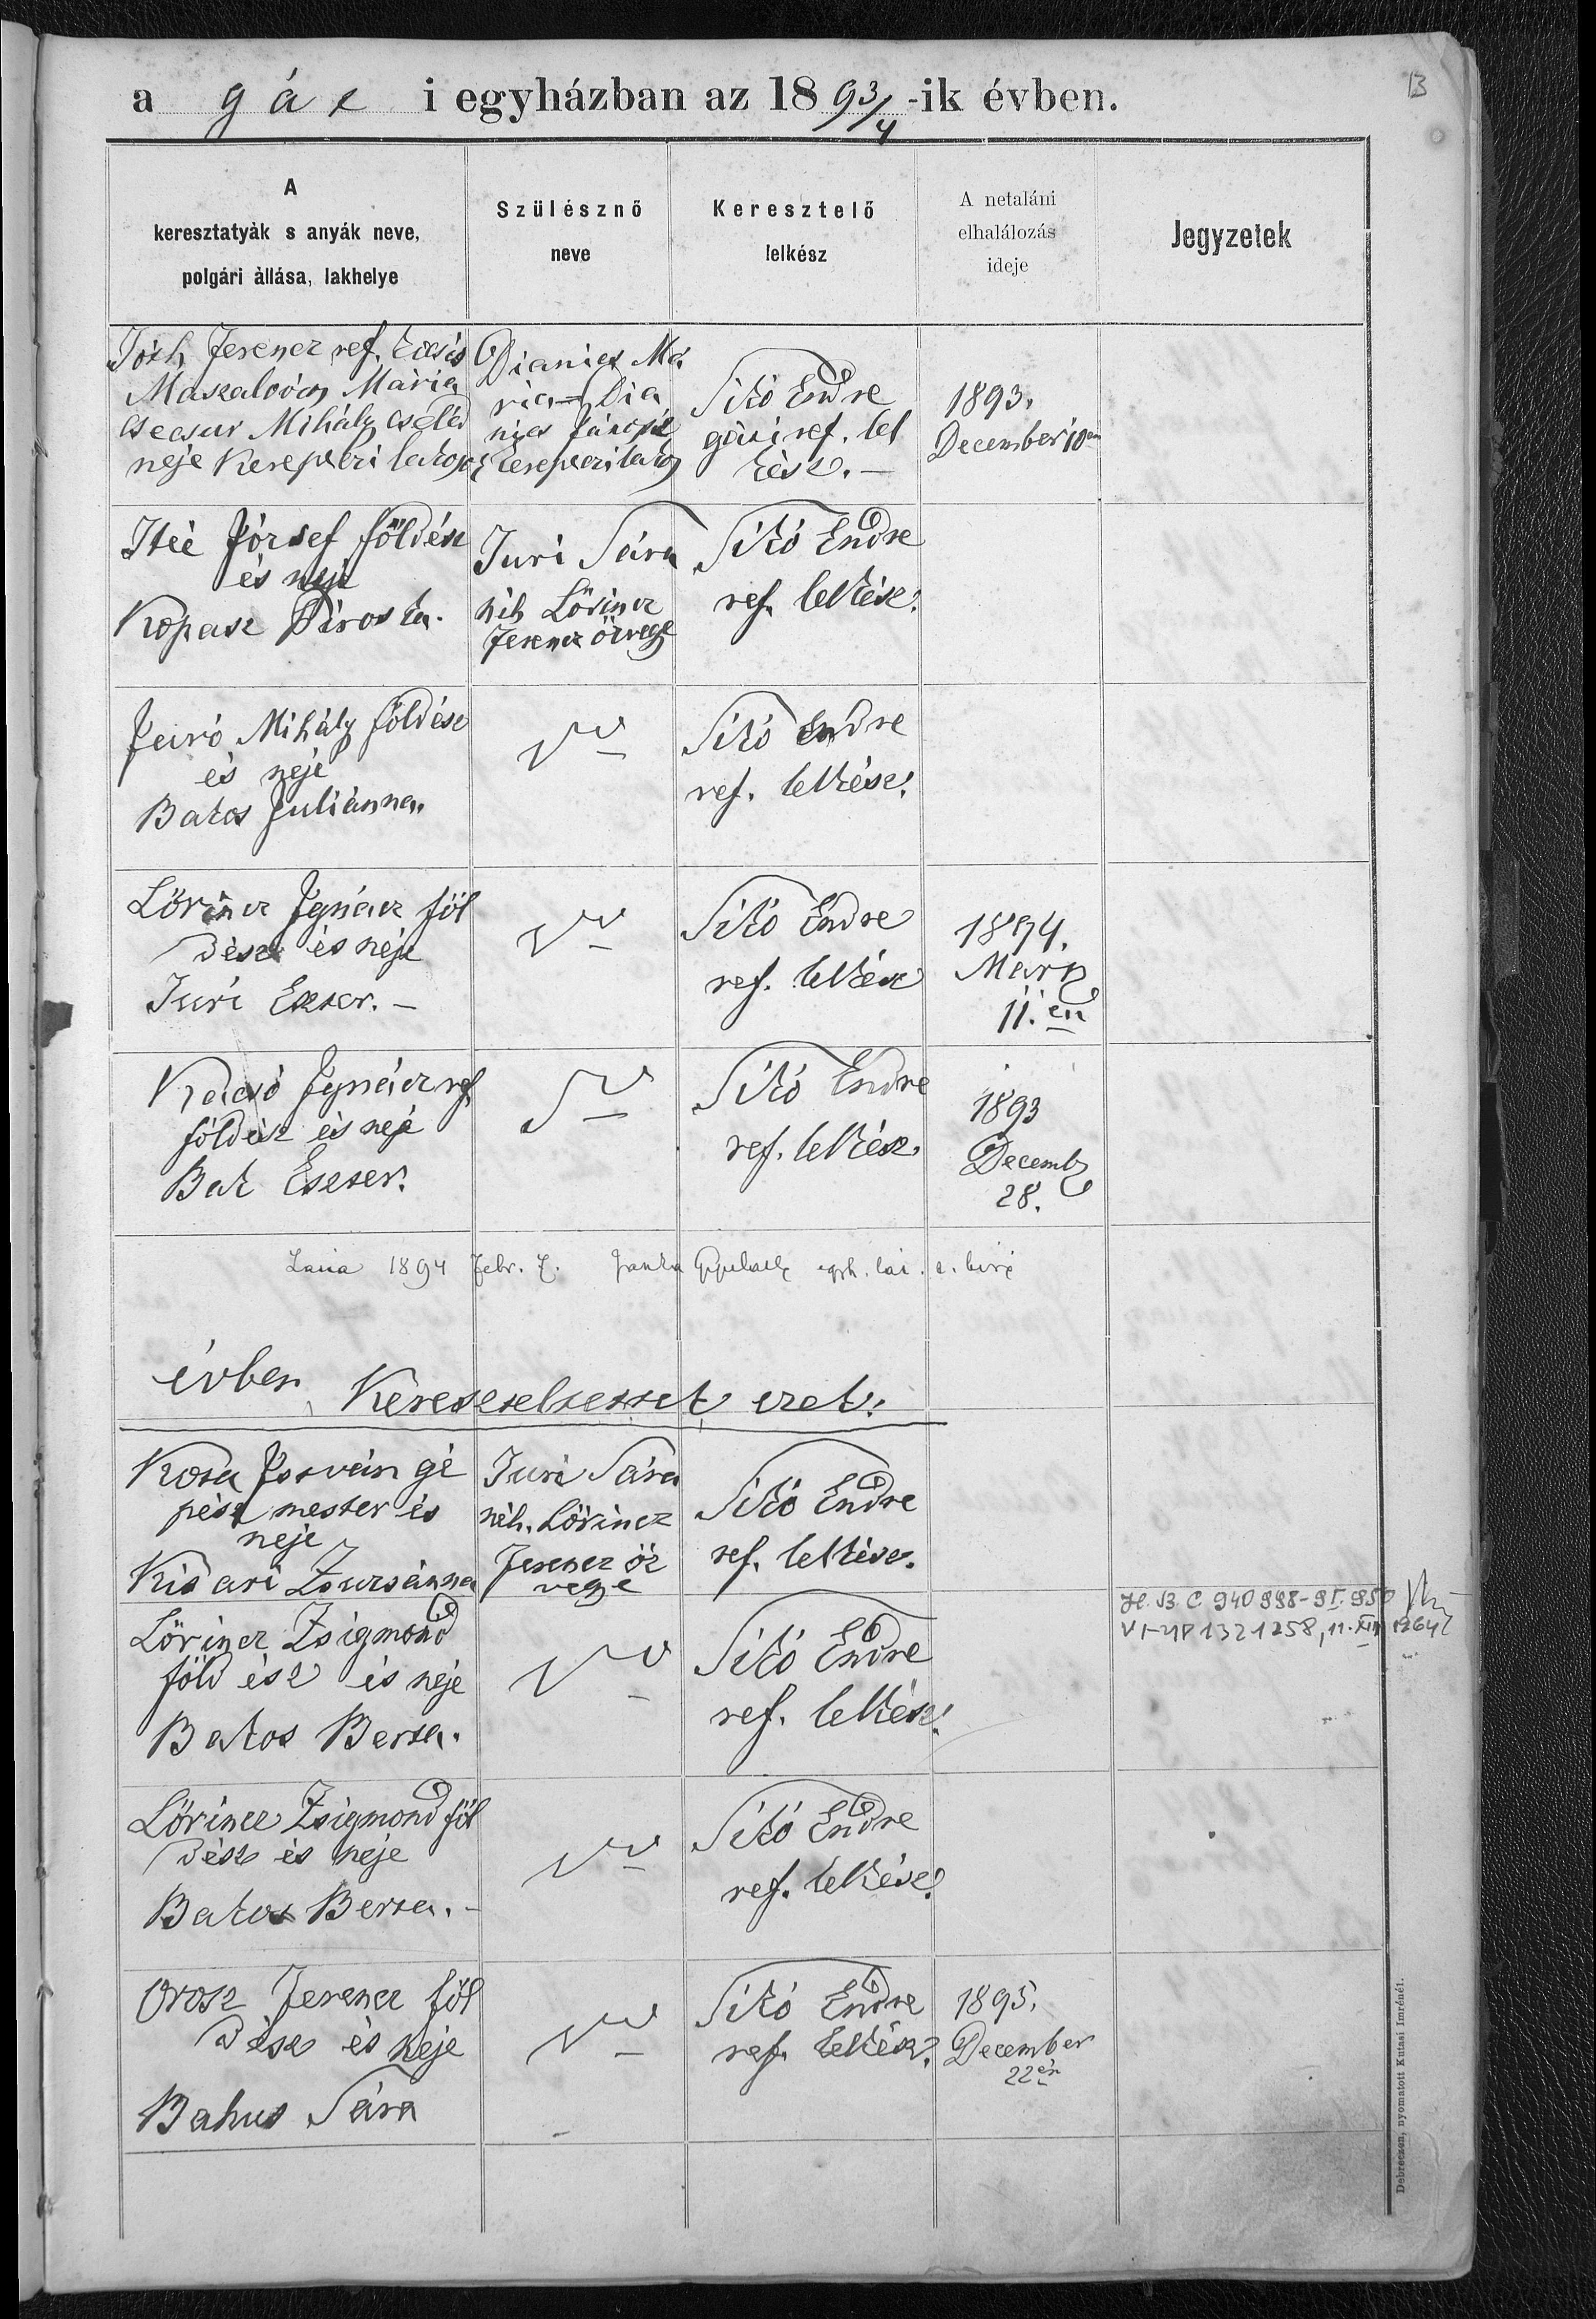 13
a gát i egyházban az 1893/4-ik évben.
A
keresztatyák s anyák neve,
polgári állása, lakhelye
Szülésznő
neve
Keresztelő
lelkész
A netaláni
elhalálozás
ideje
Jegyzetek
Tóth Ferencz ref.
Mária
Mihály cseléd
neje
Má
ria
Sikó Endre
gáti ref. lel
kész. –
1893.
December 10én
József földész
és neje
Kopasz Piroska.
Turi Sára
néh Lőrincz
Ferencz özvegye
Sikó Endre
ref. lelkész.
Mihály földész
és neje
Bakos Juliánna.
Sikó Endre
ref. lelkész.
Lőrincz Ignácz föl
dész és neje
Turi Eszter. –
Sikó Endre
ref. lelkész
1894.
Márcz
11.én
Ignácz ref
földész és neje
Bak Eszter.
Sikó Endre
ref. lelkész.
1893
Decemb
28.
1894 Febr. 7.
évben Kereszteltettek ezek:
Kosa István gé
pész mester és
neje
Kisari Zsuzsánna
Turi Sára
néh. Lőrincz
Ferencz öz
vegye
Sikó Endre
ref. lelkész.
Lőrincz Zsigmond
föld ész és neje
Bakos Berta.
Sikó Endre
ref. lelkész.
1321258, 11. XII 1964
Lőrincz Zsigmond föl
dész és neje
Bakos Berta. –
Sikó Endre
ref. lelkész.
Orosz Ferencz föl
dész és neje
Bahus Sára
Sikó Endre
ref. lelkész.
1895.
December
22én
Debreczen, nyomatott Kutasi Imrénél.